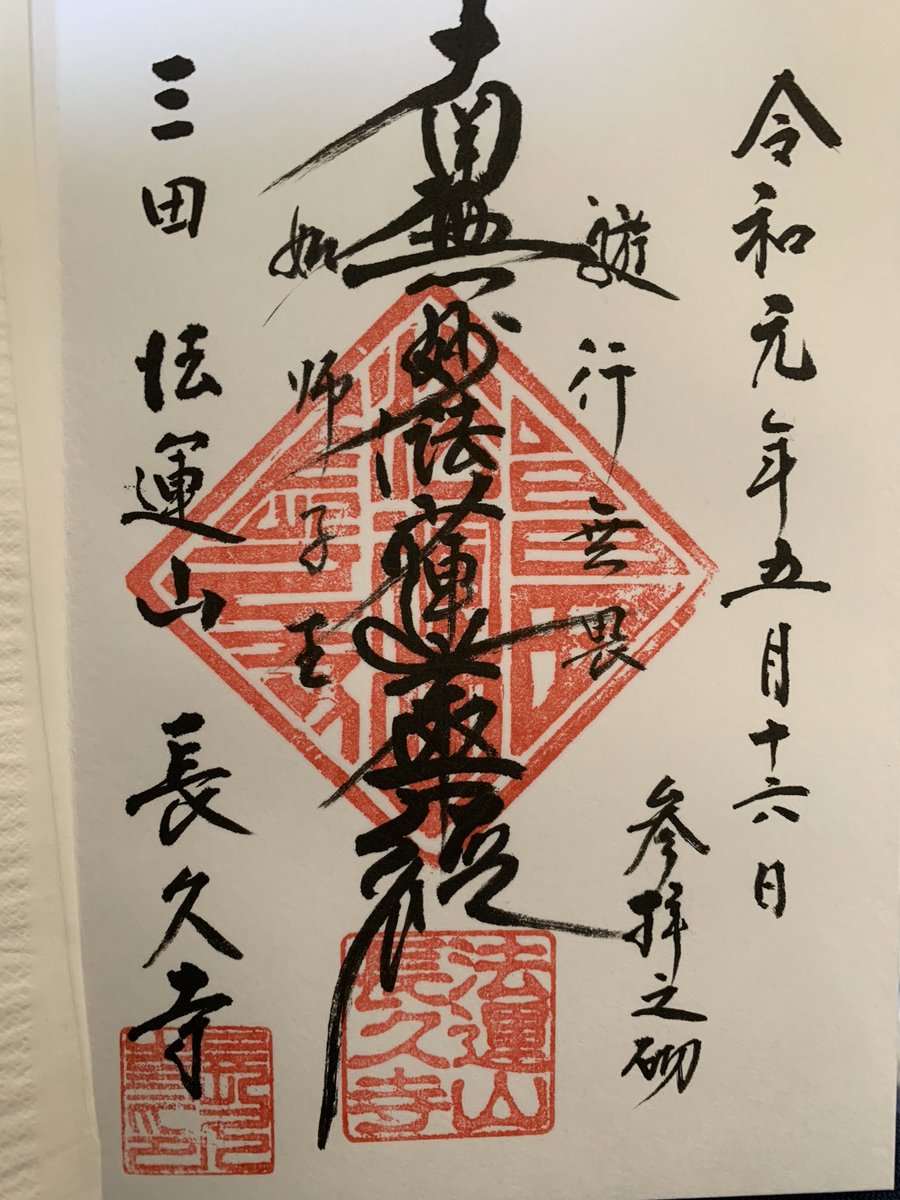 令和元年五月十六日
参拝之砌
遊行無畏
南無妙法蓮華経
如師子王
三田 法運山 長久寺
法運山
長久寺